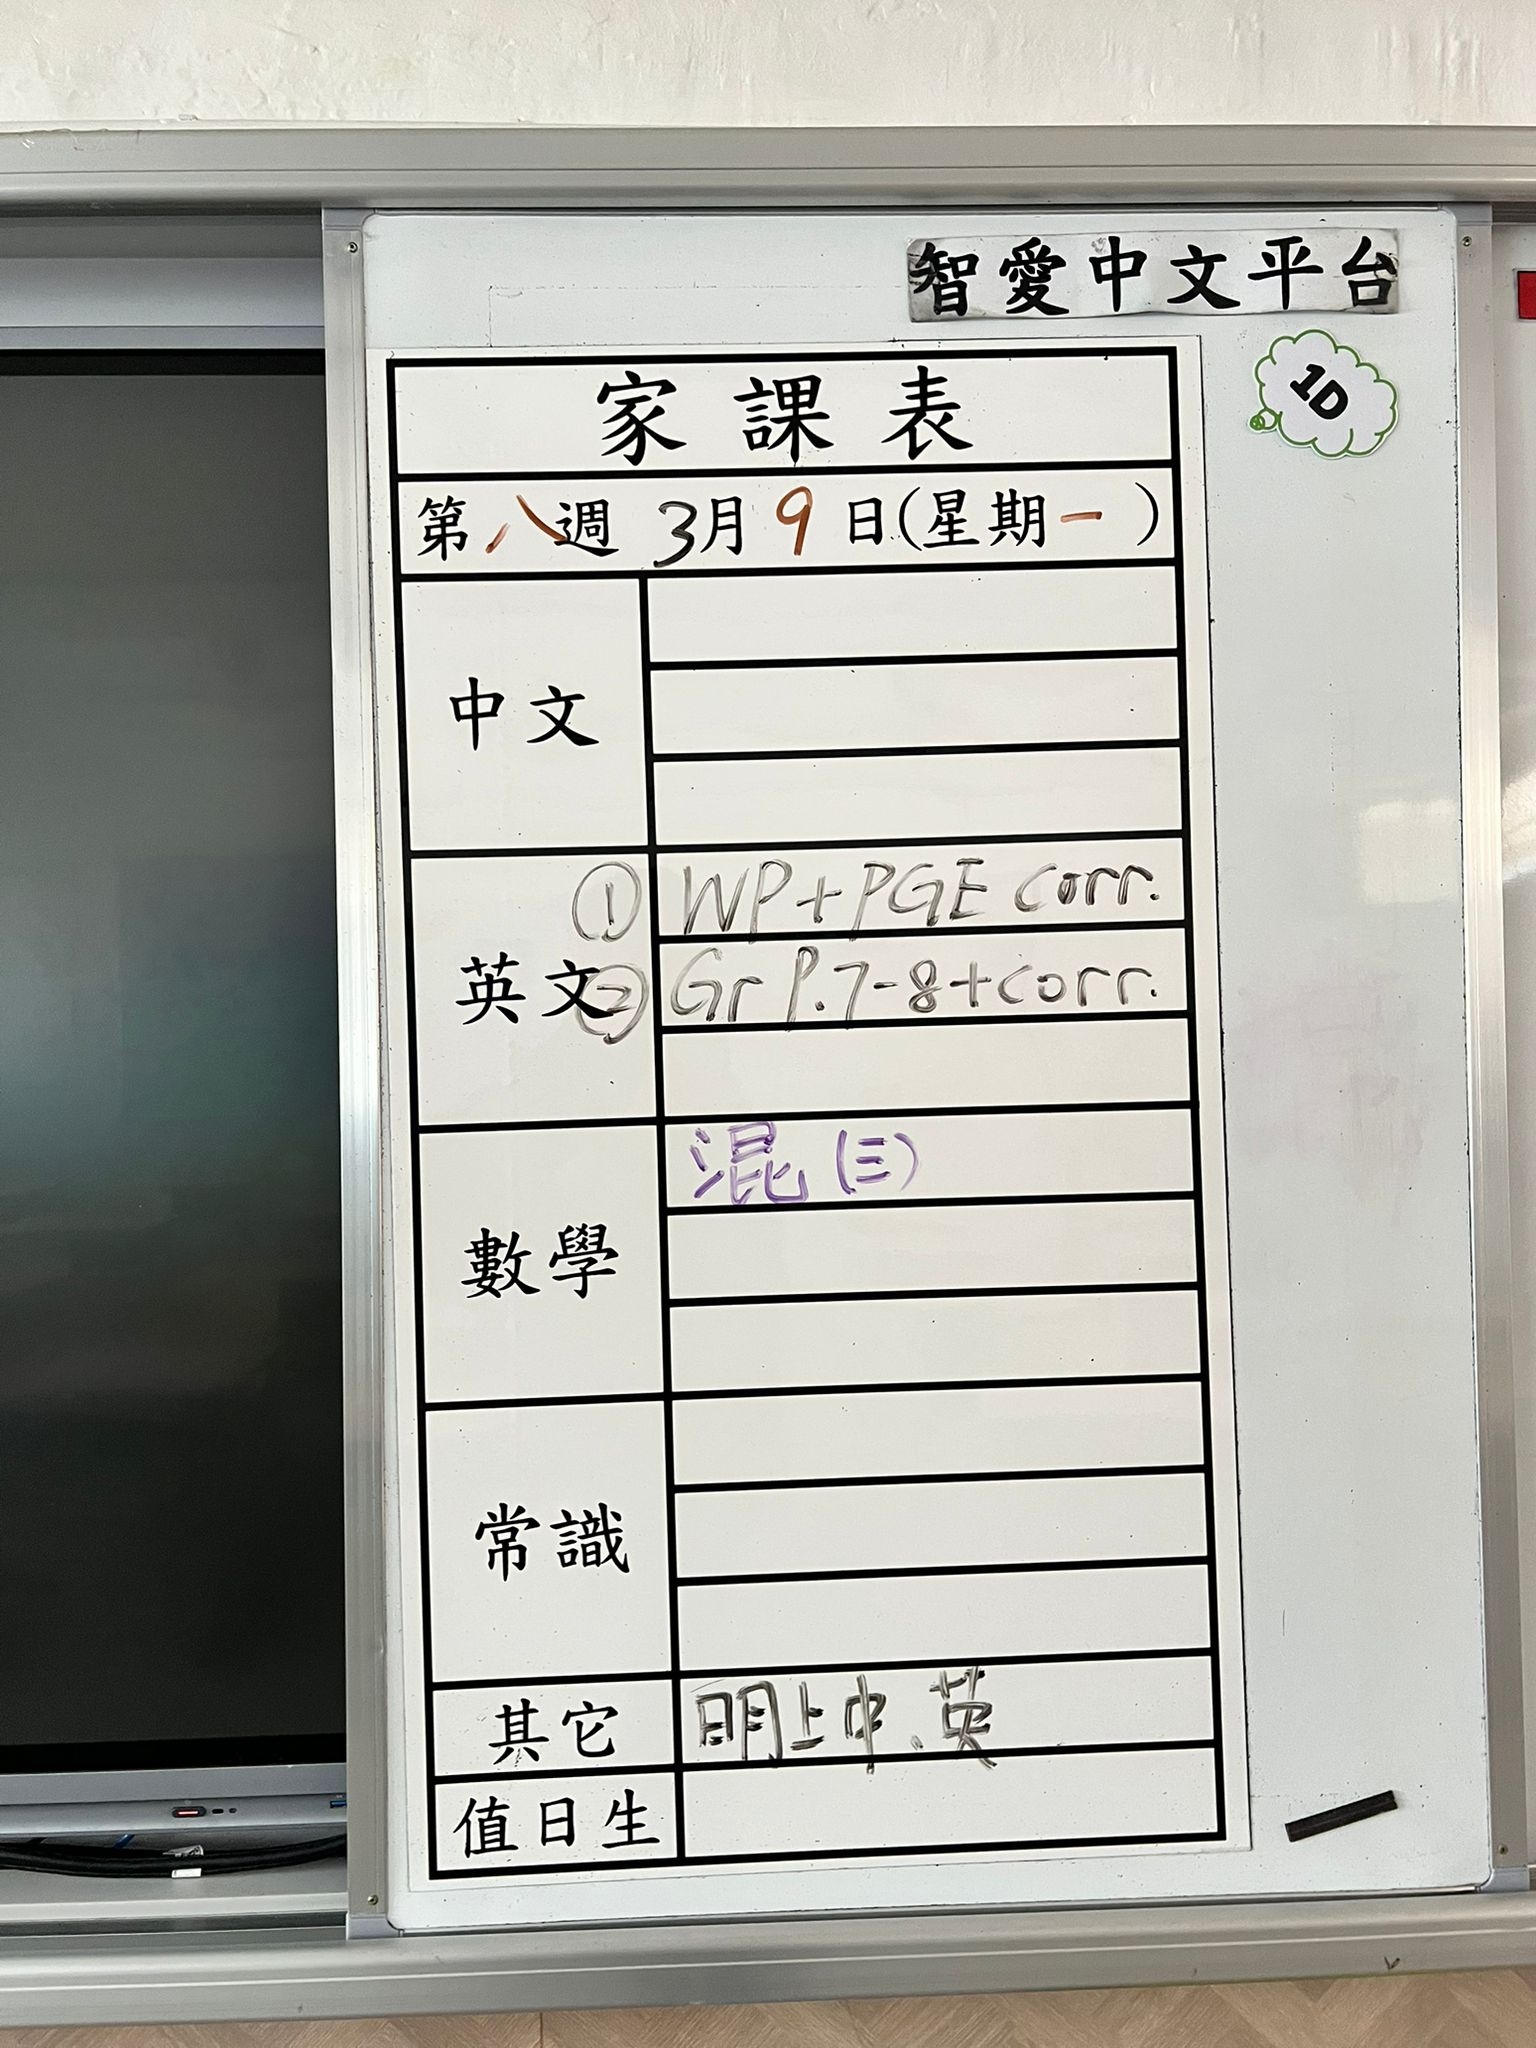 智愛中文平台
1D
家課表
第八週 3月9日(星期一)
中文
英文
① WP+PGE corr.
② Gr P.7-8+corr.
數學
混(三)
常識
其它
明上中、英
值日生